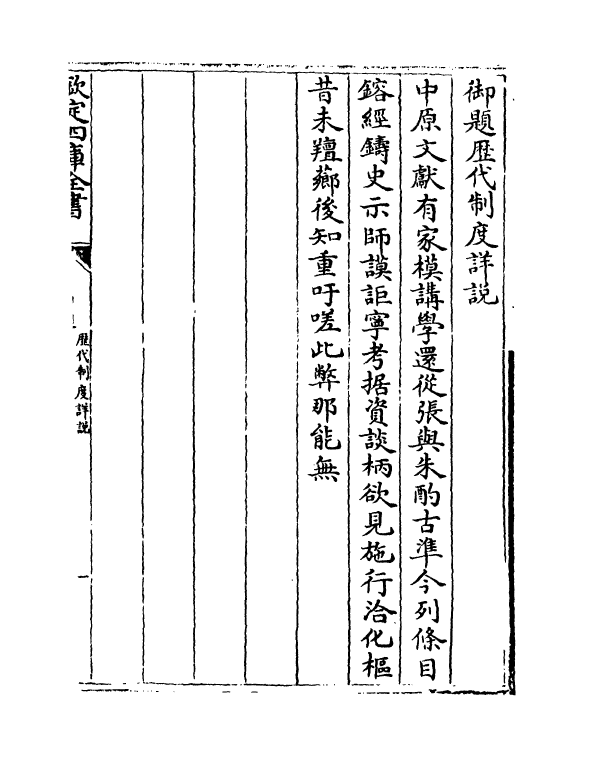 御題歴代制度詳説
中原文獻有家模講學還從張與朱酌古準今列條目
鎔經鑄史示師謨詎寧考据資談柄欲見施行洽化樞
昔未羶薌後知重吁嗟此弊那能無
欽定四庫全書
歴代制度詳説
一